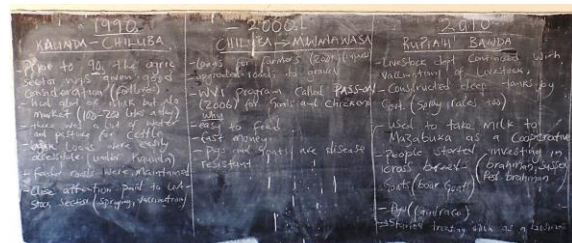 1990
KALINDA - CHILUBA
Prior to 90, the agric
sector was given good
consideration (
- had a lot of milk but no
market (100-200 Ltrs
- there was a lot of
and pasture for cattle
- loans were easily
accessible (under Kaunda)
- feeder roads were maintained
- Close attention paid to Live-
stock sector (spraying, vaccination)
- 2000 -
CHILUBA → MWANAWASA
- loans for farmers (2001
- WVI program called PASS-ON
(2006) for goats and chickens
Why
- easy to feed
- fast money
- and goats are disease
resistant
2010
RUPIAH BANDA
- Livestock dept continued with
vaccination of livestock,
- Constructed deep tanks by
Govt. (spray rates too)
- used to take milk to
Mazabuka as a Cooperative
- People started investing in
cross breed (brahman,
brahman)
Goats (boar goats)
- Started treating as a business